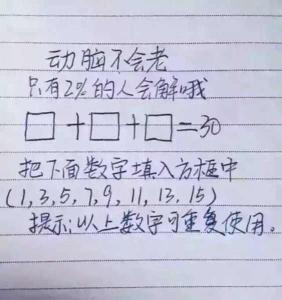 动脑不会老
只有2%的人会解哦
□+□+□=30
把下面数字填入方框中
(1,3,5,7,9,11,13.15)
提示:以上数字可重复使用。